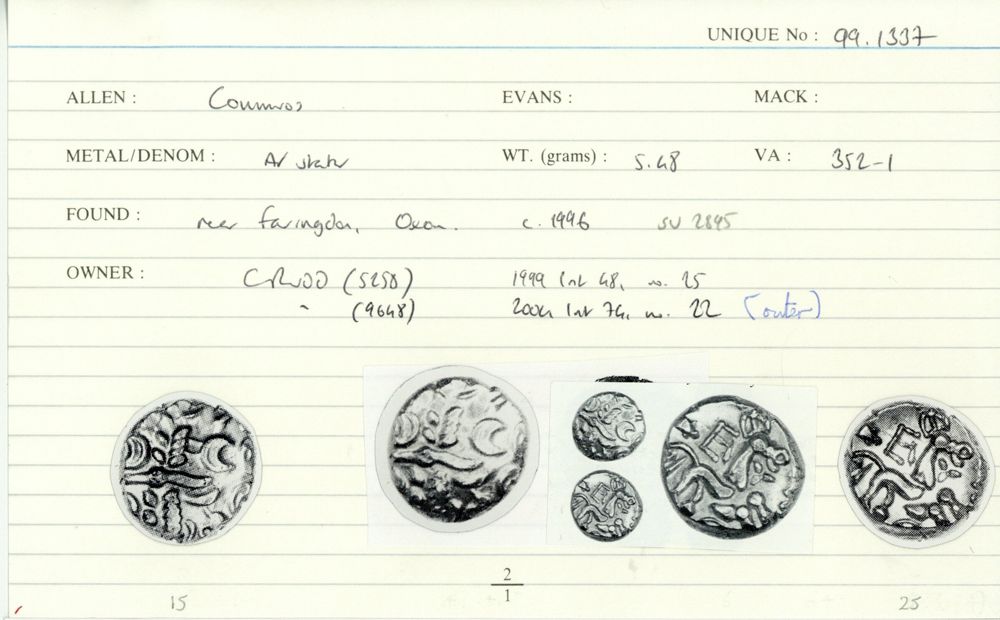 UNIQUE No : 99.1337
ALLEN : Commios EVANS : MACK :
METAL/DENOM : AV stater WT. (grams) : 5.48 VA : 352-1
FOUND : near Faringdon, Oxon. c. 1996 SU 2895
OWNER : CRUDD (5258) 1999 list 48, no. 25
" (9648) 2004 list 74, no. 22 (outer)
2
1
15 25